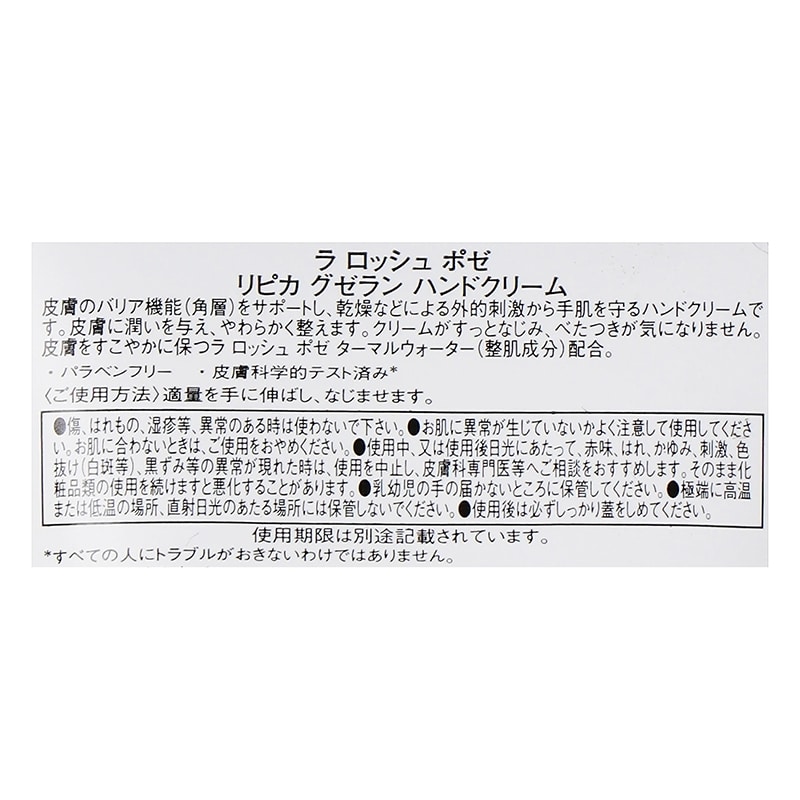 ラ ロッシュ ポゼ
リピカ グゼラン ハンドクリーム
皮膚のバリア機能(角層)をサポートし、乾燥などによる外的刺激から手肌を守るハンドクリームで
す。皮膚に潤いを与え、やわらかく整えます。クリームがすっとなじみ、べたつきが気になりません。
皮膚をすこやかに保つラ ロッシュ ポゼ ターマルウォーター(整肌成分)配合。
・パラベンフリー ・皮膚科学的テスト済み*
〈ご使用方法〉適量を手に伸ばし、なじませます。
●傷、はれもの、湿疹等、異常のある時は使わないで下さい。●お肌に異常が生じていないかよく注意して使用してくださ
い。お肌に合わないときは、ご使用をおやめください。●使用中、又は使用後日光にあたって、赤味、はれ、かゆみ、刺激、色
抜け(白斑等)、黒ずみ等の異常が現れた時は、使用を中止し、皮膚科専門医等へご相談をおすすめします。そのまま化
粧品類の使用を続けますと悪化することがあります。●乳幼児の手の届かないところに保管してください。●極端に高温
または低温の場所、直射日光のあたる場所には保管しないでください。●使用後は必ずしっかり蓋をしめてください。
使用期限は別途記載されています。
*すべての人にトラブルがおきないわけではありません。